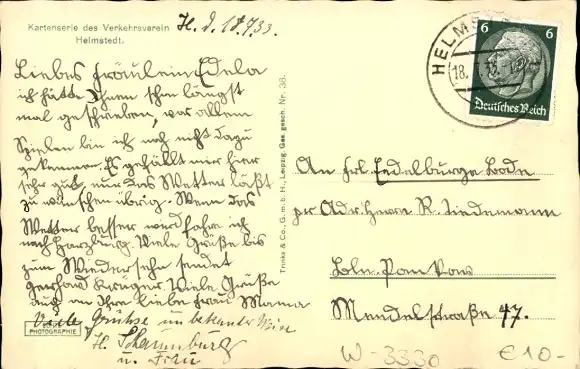 Kartenserie des Verkehrsverein
Helmstedt.
H. d. 18.7.33.
Liebes Fräulein Edela
ich hätte Ihnen schon längst
mal geschrieben, vor allem
Spielen bin ich noch nicht dazu
gekommen. Es gefällt mir hier
sehr gut, nur das Wetter läßt
zu wünschen übrig. Wenn das
Wetter besser wird fahre ich
nach Harzburg. Viele Grüße bis
zum Wiedersehn sendet
Gerhard Krüger. Viele Grüße
auch an Ihre liebe Frau Mama
Viele Grüße un bekannter Weise
H. Schaumburg
u. Frau
PHOTOGRAPHIE
Trinks & Co., G. m. b. H., Leipzig Ges. gesch. Nr. 38.
HELMST
18.7.33.
6 6
Deutsches Reich
An Frl. Edelburga Bode
pr Adr Herrn R. Tiedemann
Mendelstraße 47.
W-3330
€10-